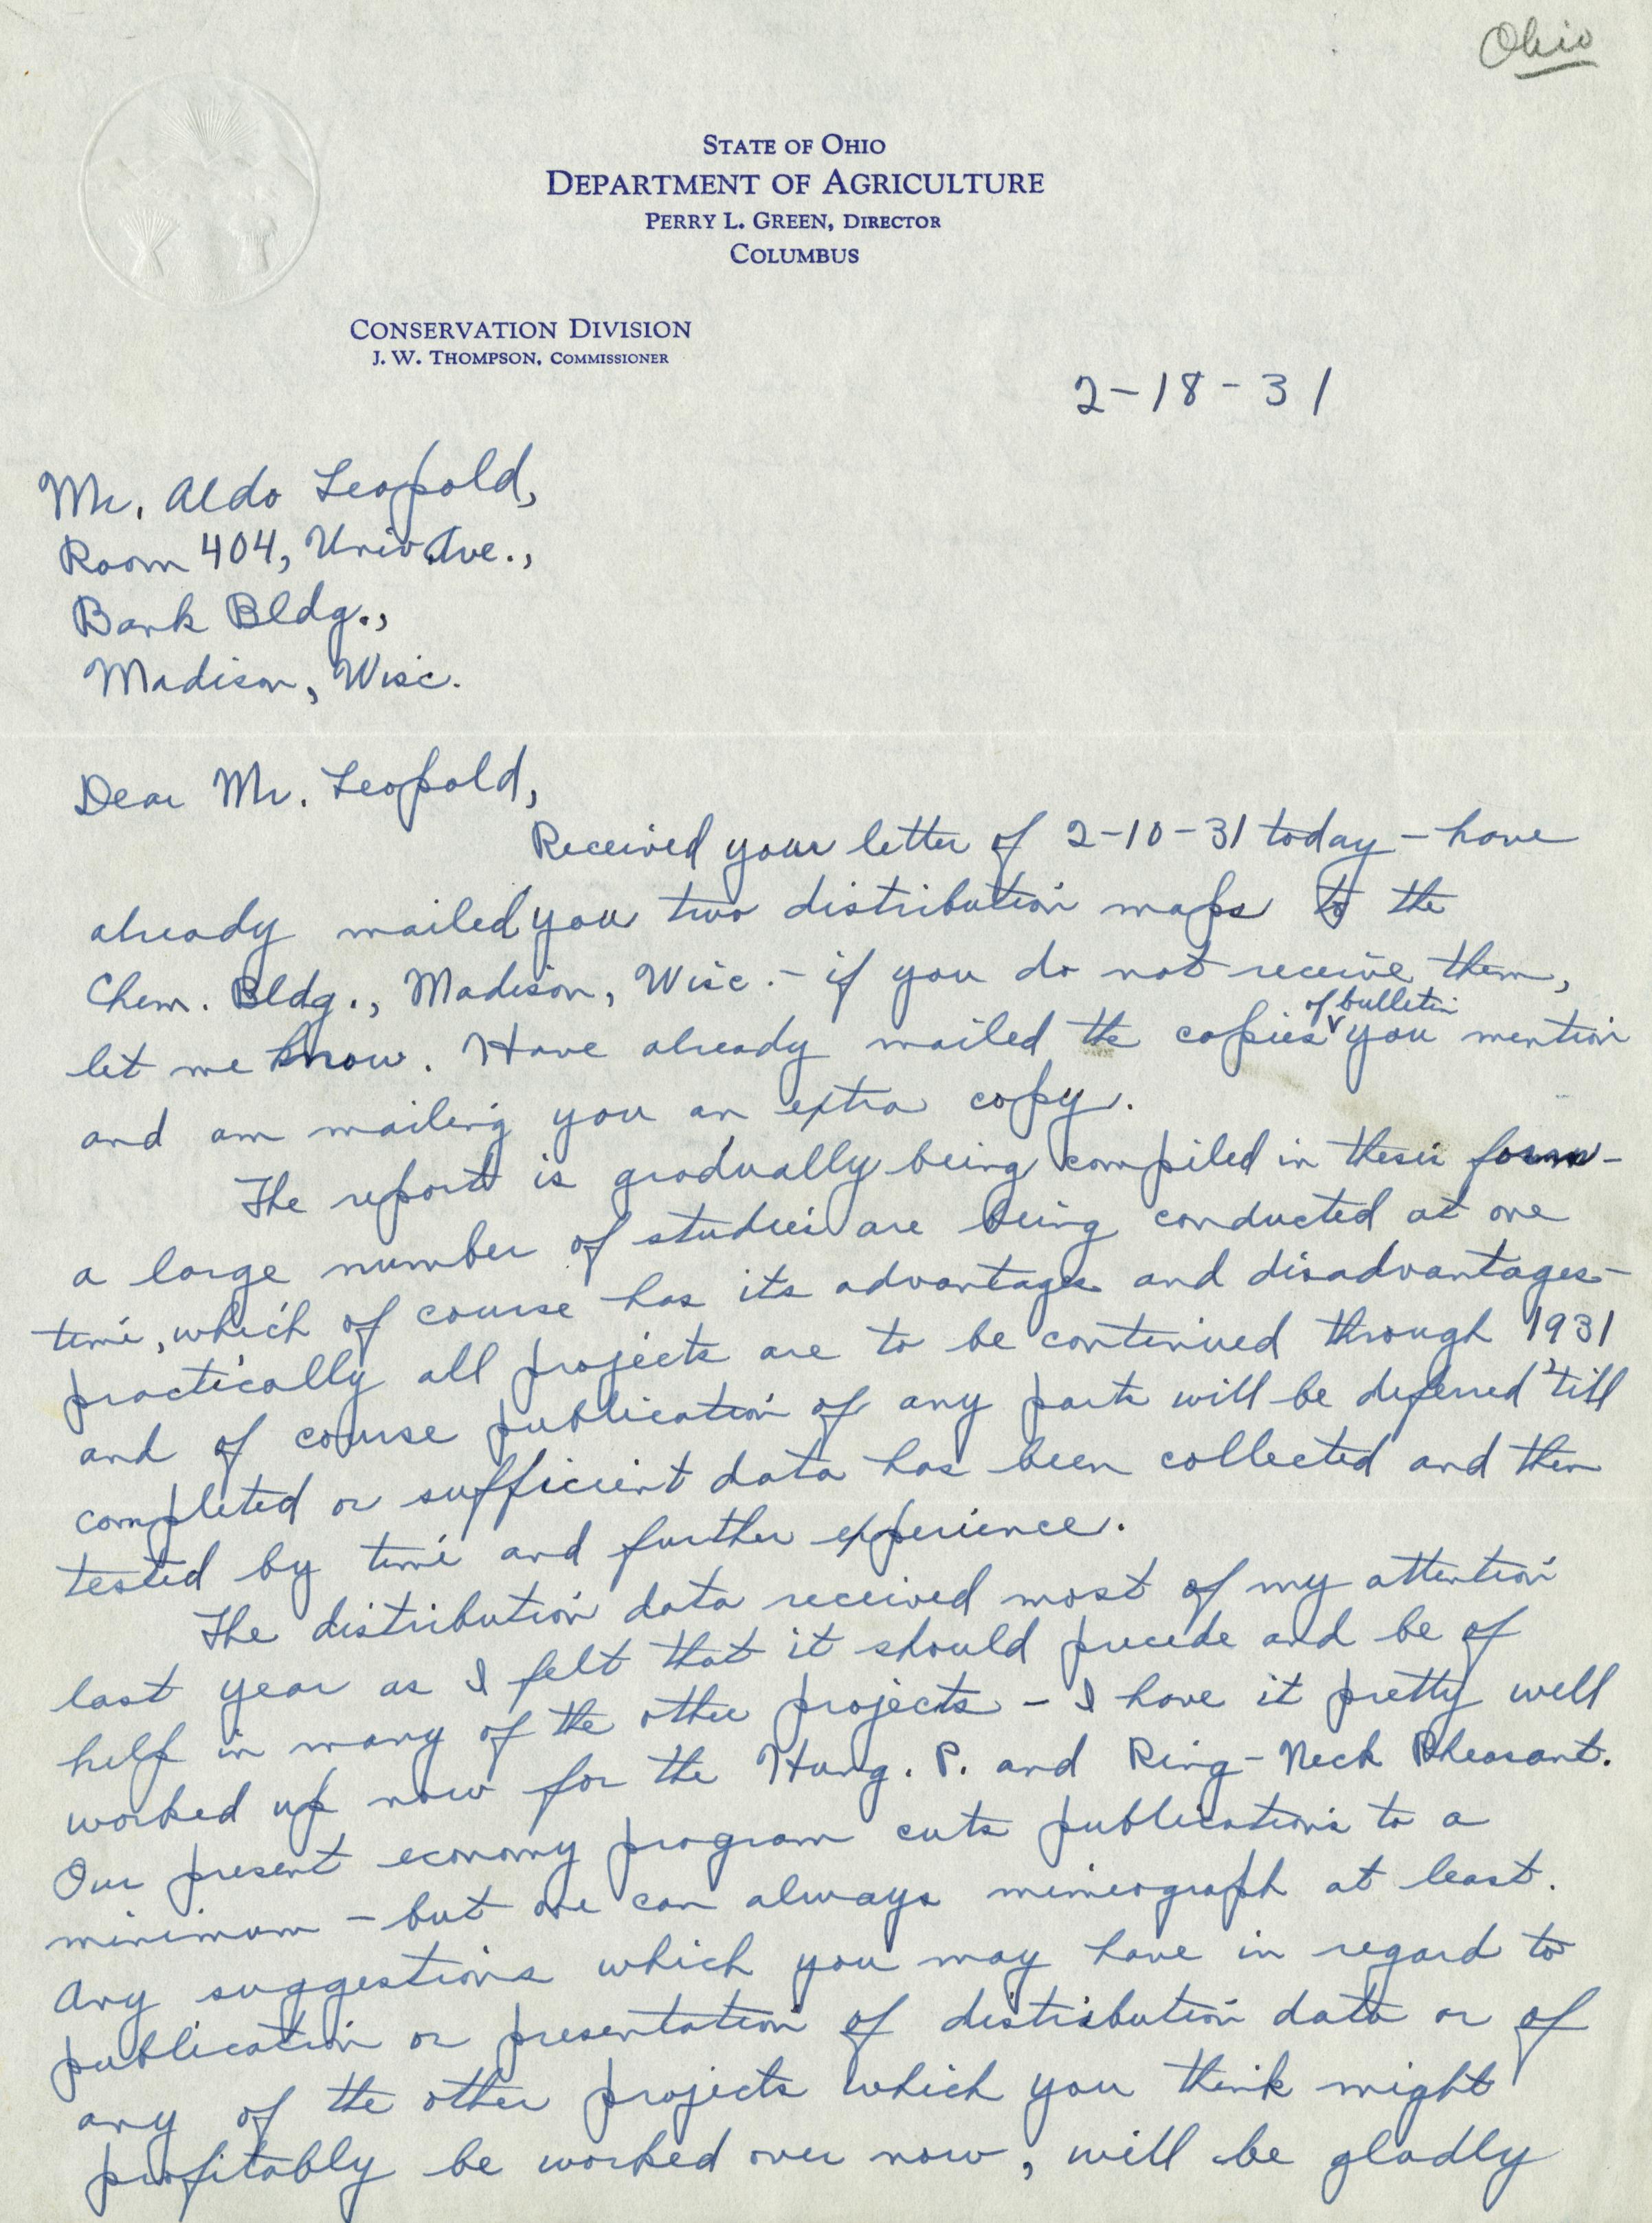 Ohio
STATE OF OHIO
DEPARTMENT OF AGRICULTURE
PERRY L. GREEN, DIRECTOR
COLUMBUS
CONSERVATION DIVISION
J. W. THOMPSON, COMMISSIONER
2-18-31
Mr. Aldo Leopold,
Room 404, Univ. Ave.,
Bank Bldg.,
Madison, Wisc.
Dear Mr. Leopold,
Received your letter of 2-10-31 today - have
already mailed you two distribution maps to the
Chem. Bldg., Madison, Wisc. - if you do not receive them,
let me know. Have already mailed the copies of bulletin you mention
and am mailing you an extra copy.
The report is gradually being compiled in thesis form -
a large number of studies are being conducted at one
time, which of course has its advantages and disadvantages -
practically all projects are to be continued through 1931
and of course publication of any parts will be deferred 'till
completed or sufficient data has been collected and then
tested by time and further experience.
The distribution data received most of my attention
last year as I felt that it should precede and be of
help in many of the other projects - I have it pretty well
worked up now for the Hung. P. and Ring-Neck Pheasant.
Our present economy program cuts publications to a
minimum - but we can always mimeograph at least.
Any suggestions which you may have in regard to
publication or presentation of distribution data or of
any of the other projects which you think might
profitably be worked over now, will be gladly